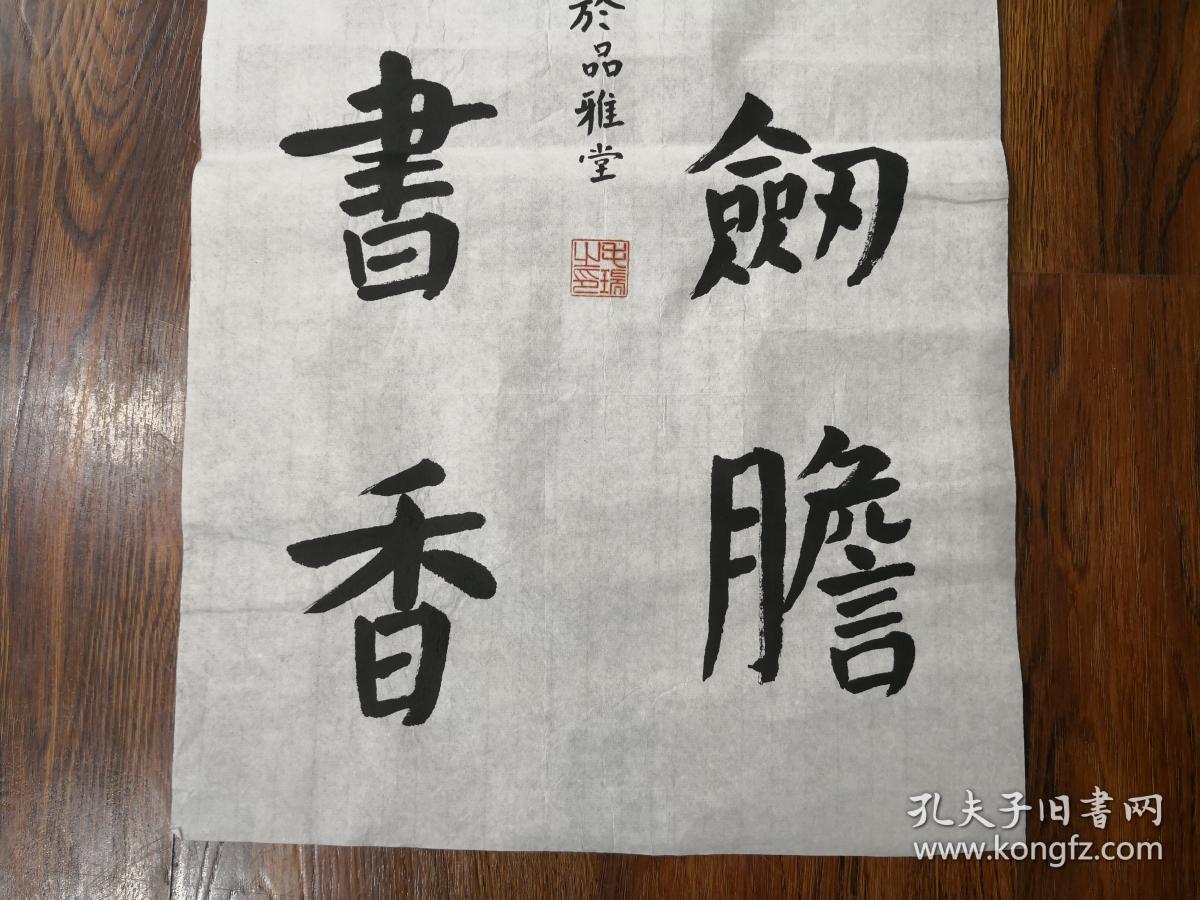 劒膽
於品雅堂
瑞之印
書香
孔夫子旧書网
www.kongfz.com